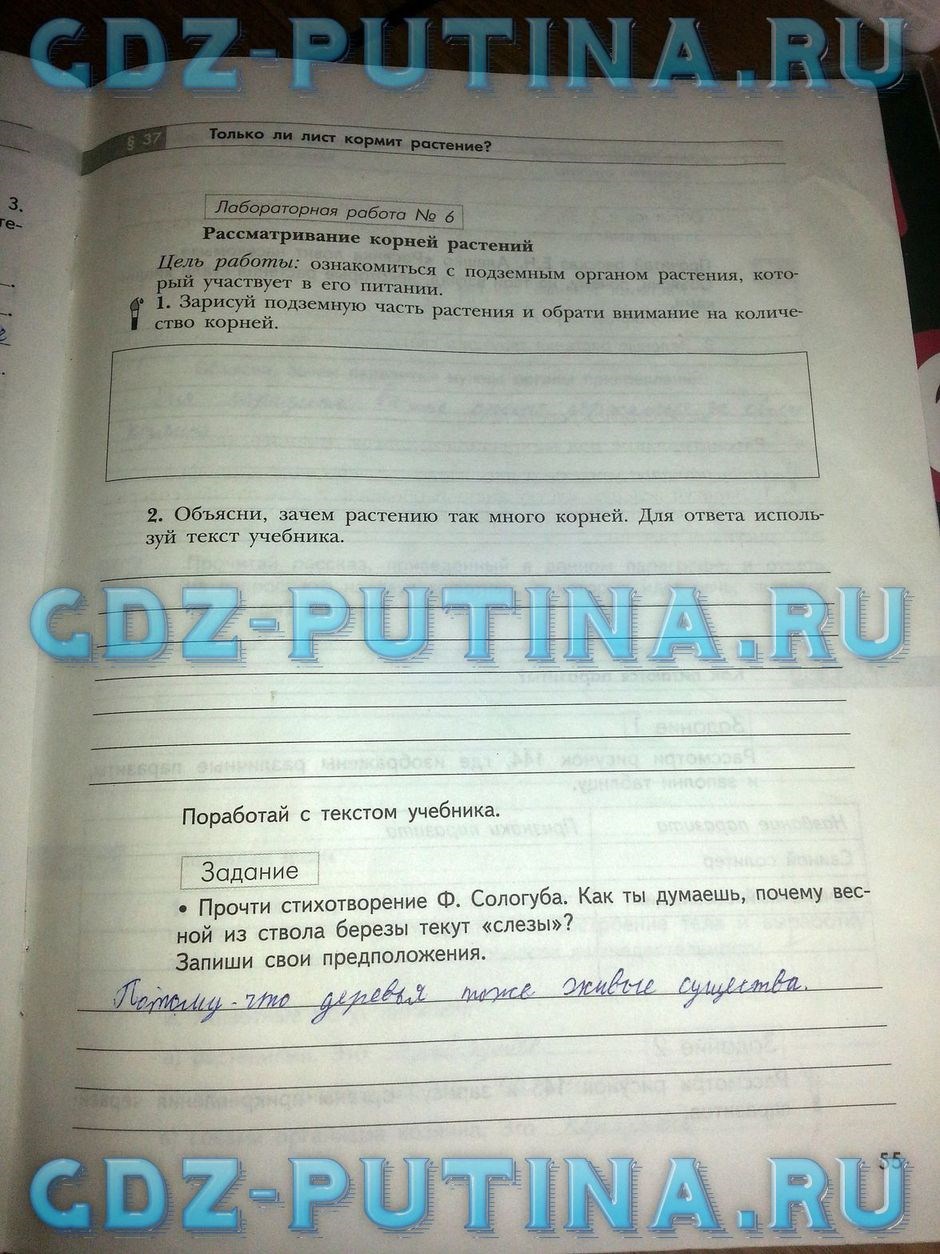 GDZ-PUTINA.RU
§ 37 Только ли лист кормит растение?
3.
те-
Лабораторная работа № 6
Рассматривание корней растений
Цель работы: ознакомиться с подземным органом растения, кото-
рый участвует в его питании.
1. Зарисуй подземную часть растения и обрати внимание на количе-
ство корней.
2. Объясни, зачем растению так много корней. Для ответа исполь-
зуй текст учебника.
GDZ-PUTINA.RU
Поработай с текстом учебника.
Задание
• Прочти стихотворение Ф. Сологуба. Как ты думаешь, почему вес-
ной из ствола березы текут «слезы»?
Запиши свои предположения.
Потому-что деревья тоже живые существа.
55
GDZ-PUTINA.RU